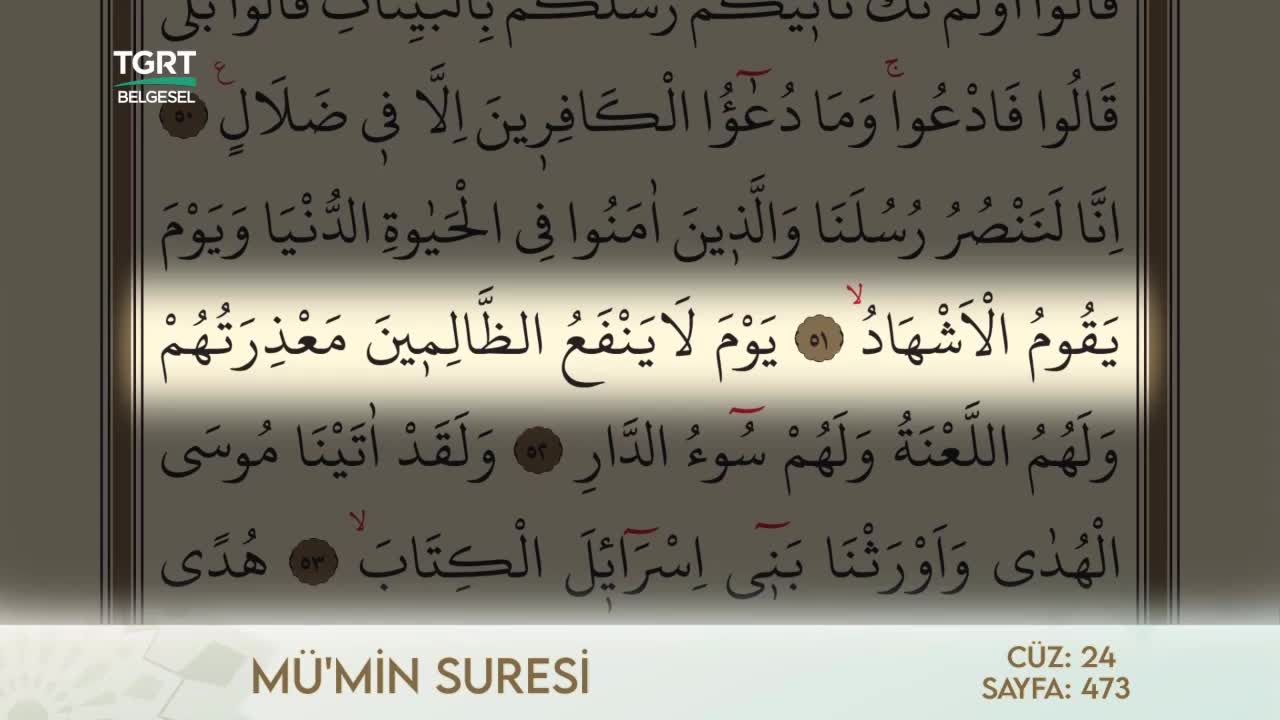 قَالُوا اَوَلَمْ تَكُ تَأْت۪يكُمْ رُسُلُكُمْ بِالْبَيِّنَاتِ قَالُوا بَلٰى
TGRT
BELGESEL
قَالُوا فَادْعُواۚ وَمَا دُعٰٓؤُا الْكَافِر۪ينَ اِلَّا ف۪ي ضَلَالٍ۟ ٥٠
اِنَّا لَنَنْصُرُ رُسُلَنَا وَالَّذ۪ينَ اٰمَنُوا فِي الْحَيٰوةِ الدُّنْيَا وَيَوْمَ
يَقُومُ الْاَشْهَادُۙ ٥١ يَوْمَ لَايَنْفَعُ الظَّالِم۪ينَ مَعْذِرَتُهُمْ
وَلَهُمُ اللَّعْنَةُ وَلَهُمْ سُٓوءُ الدَّارِ ٥٢ وَلَقَدْ اٰتَيْنَا مُوسَى
الْهُدٰى وَاَوْرَثْنَا بَن۪ٓي اِسْرَٓائ۪لَ الْكِتَابَۙ ٥٣ هُدًى
MÜ'MİN SURESİ
CÜZ: 24
SAYFA: 473